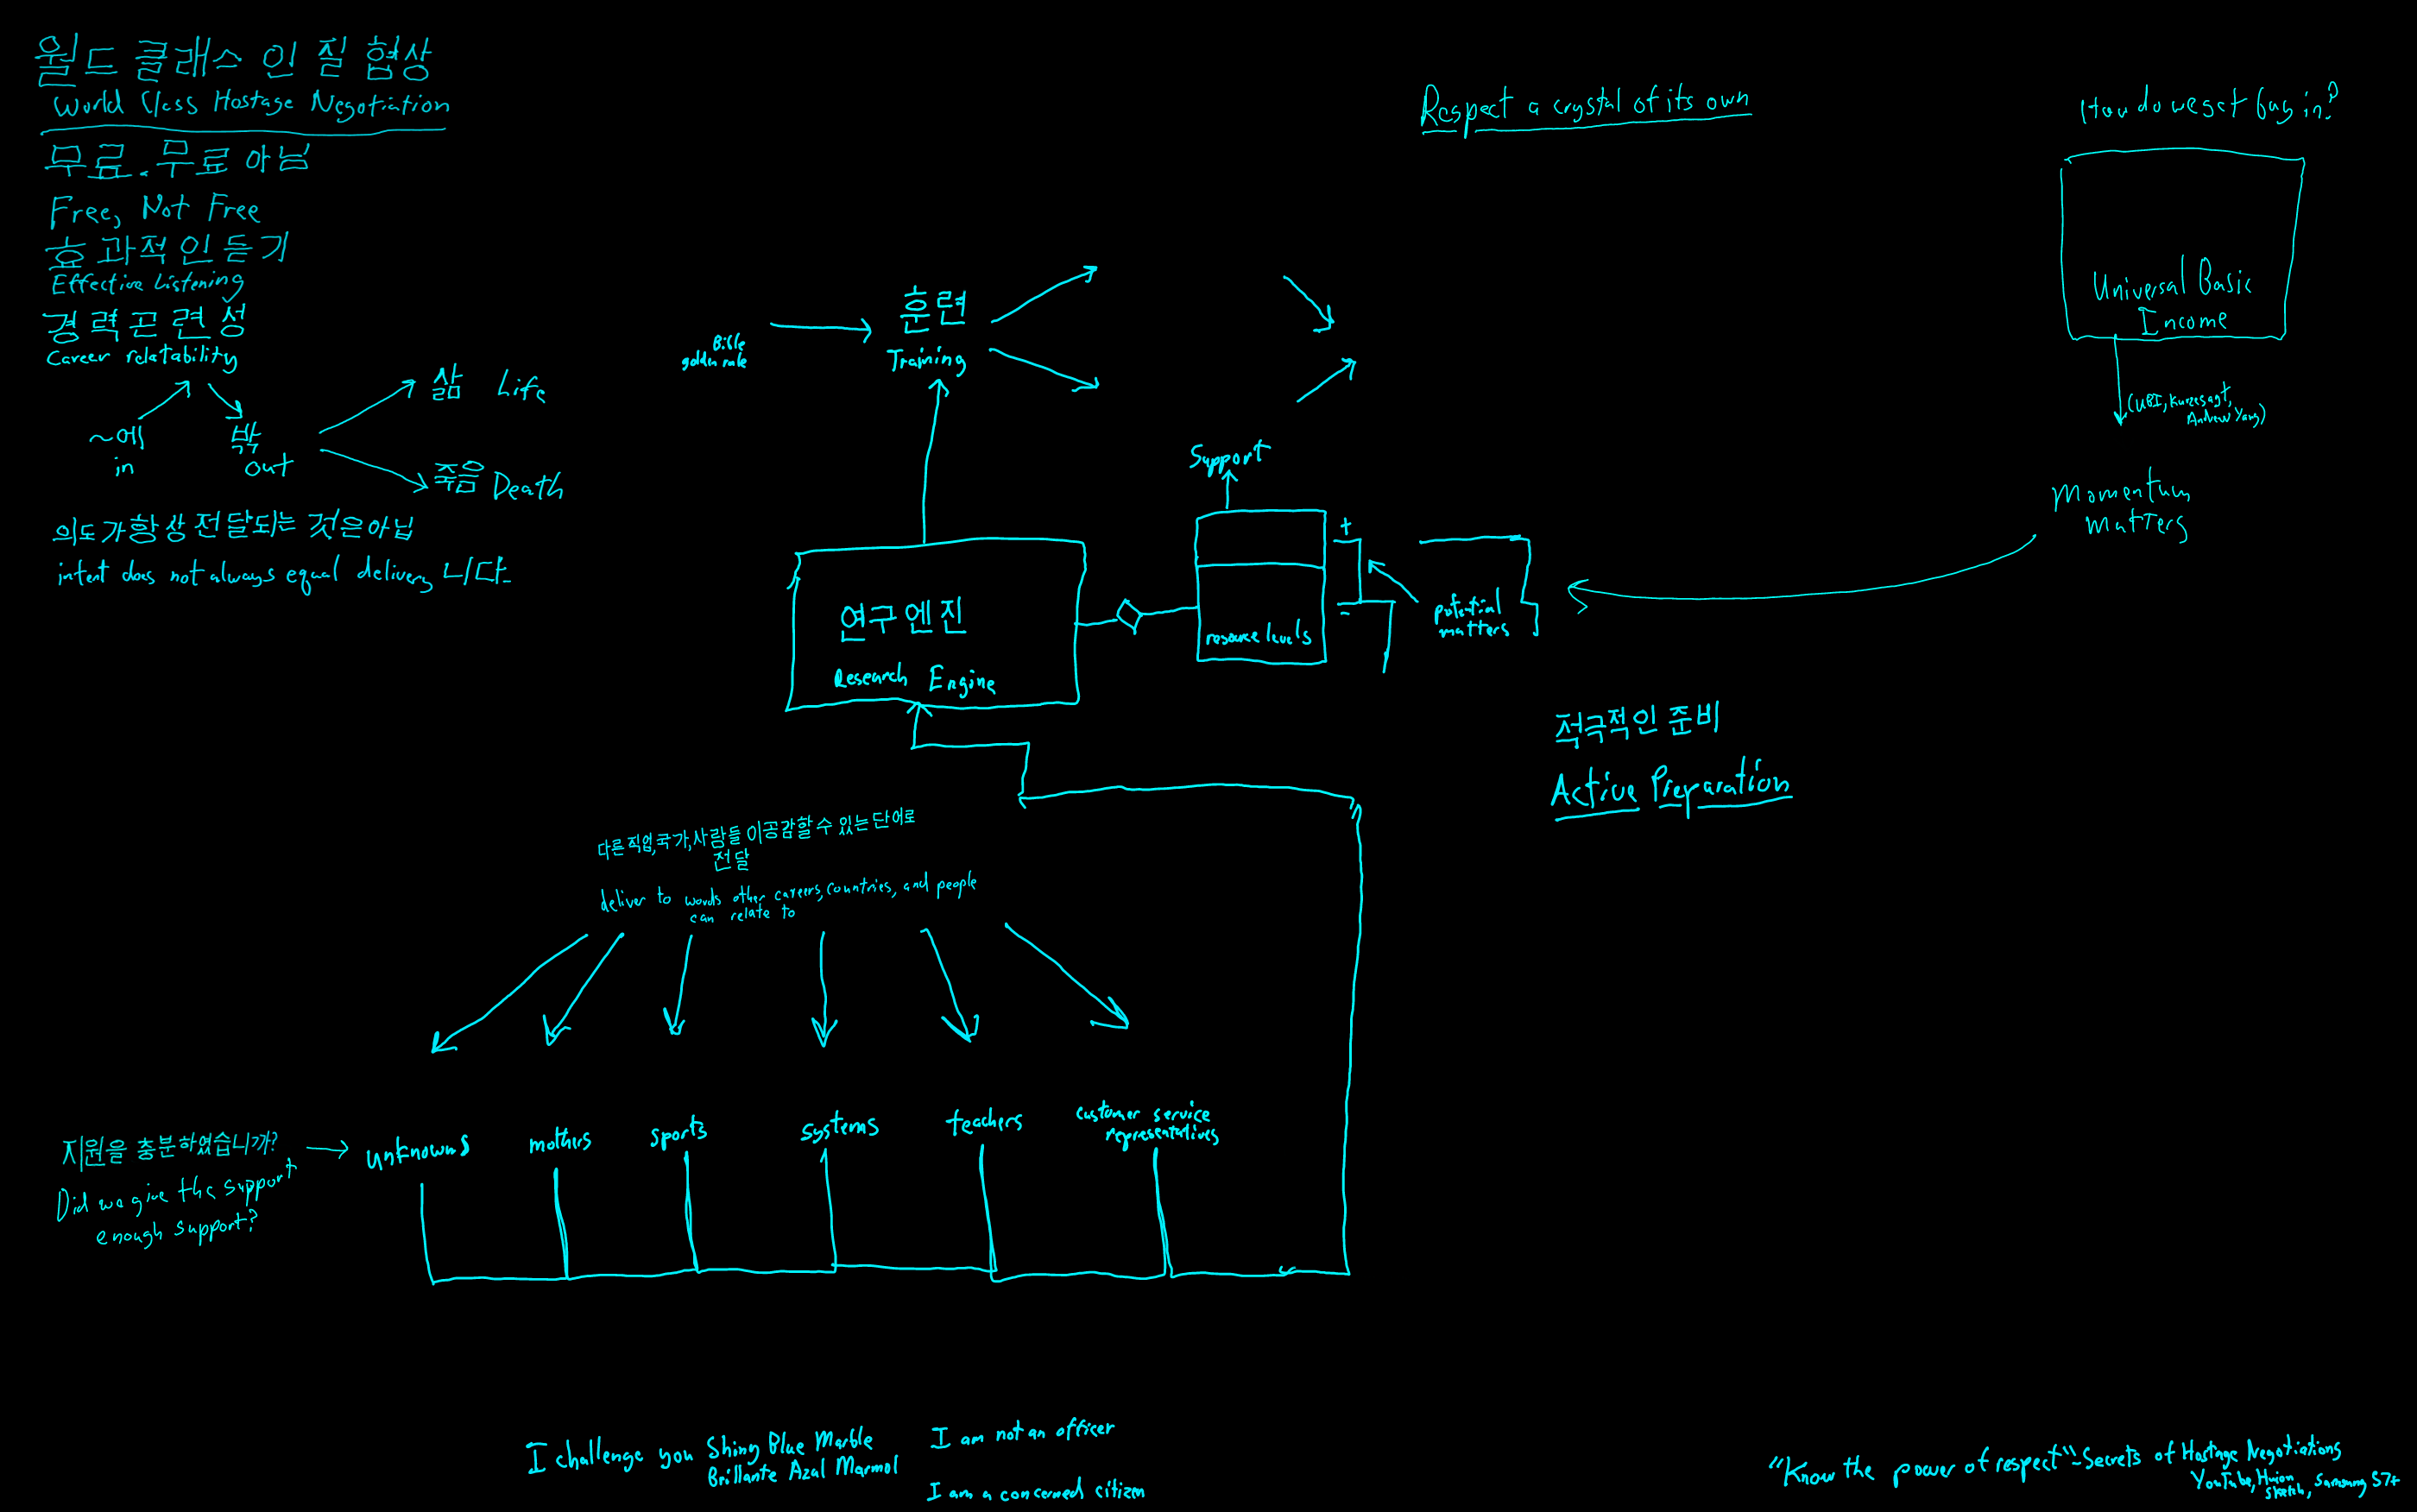 월드 클래스 인질 협상
World Class Hostage Negotiation
무료. 무료 아님
Free, Not Free
효과적인 듣기
Effective Listening
경력 관련성
Career relatability
~에
in
밖
out
삶 Life
죽음 Death
의도가 항상 전달되는 것은 아닙
intent does not always equal delivery 니다.
Bible
golden rule
훈련
Training
Respect a crystal of its own
How do we get buy in?
Universal Basic
Income
(UBI, Kurzesagt,
Andrew Yang)
Momentum
matters
Support
+
-
resource levels
potential
matters
연구 엔진
Research Engine
적극적인 준비
Active Preparation
다른 직업, 국가, 사람들이 공감할 수 있는 단어로
전달
deliver to words other careers, countries, and people
can relate to
지원을 충분하였습니까?
Did we give the support
enough support?
unknowns
mothers
sports
systems
teachers
customer service
representatives
I challenge you Shiny Blue Marble
Brillante Azul Marmol
I am not an officer
I am a concerned citizen
"Know the power of respect" - Secrets of Hostage Negotiations
YouTube, Huion
Sketch, Samsung S7+